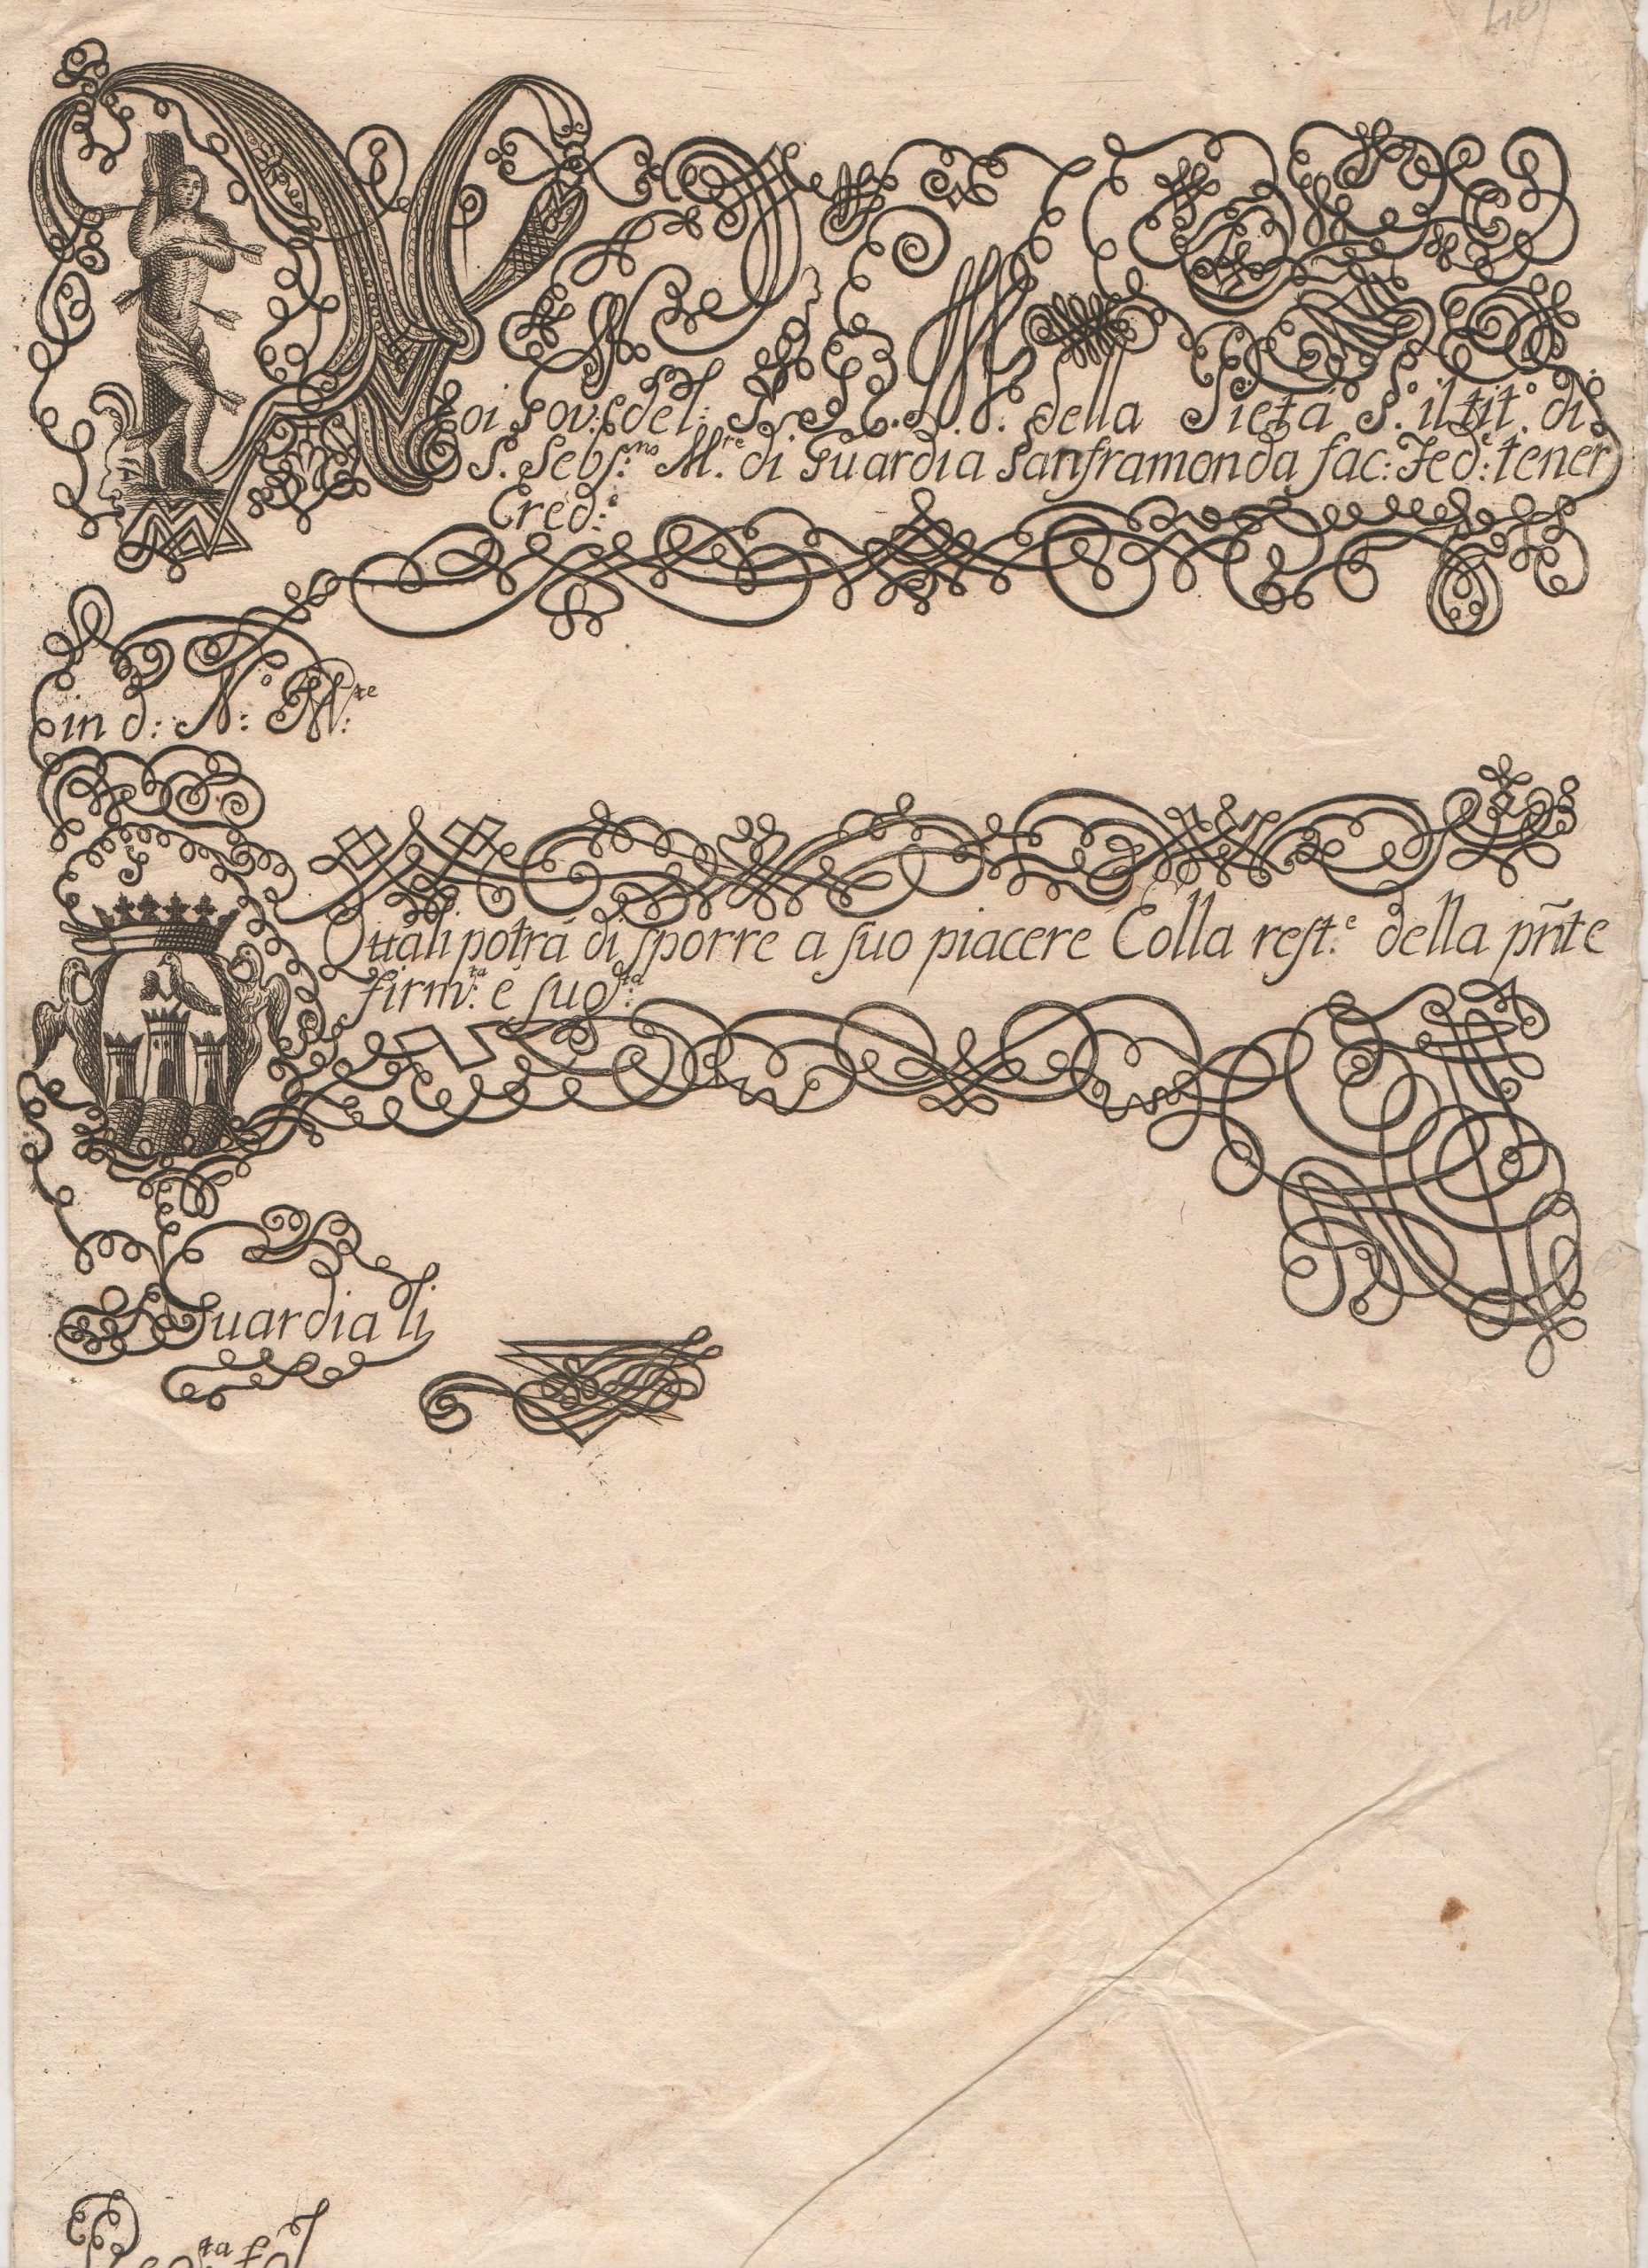 Noi Gov: del: S. S. M. D. della Pietà S.o il tit.o di
S. Seb:no M.re di Guardia Sanframonda fac: Fed:e tener
Cred:e
in d:o N:o M:te
Quali potrà disporre a suo piacere Colla rest.e della pñte
firm:ta e sug:ta
Guardia li
Reg.ta fol